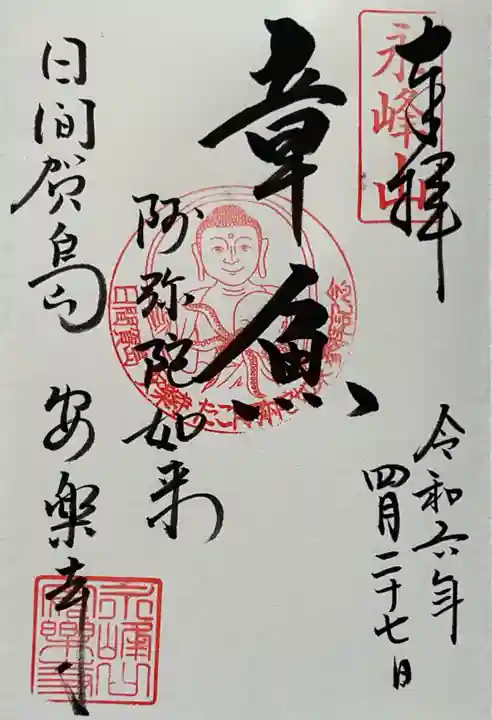 奉拝
永峰山
令和六年
四月二十七日
章魚
阿弥陀如来
日間賀島 安楽寺